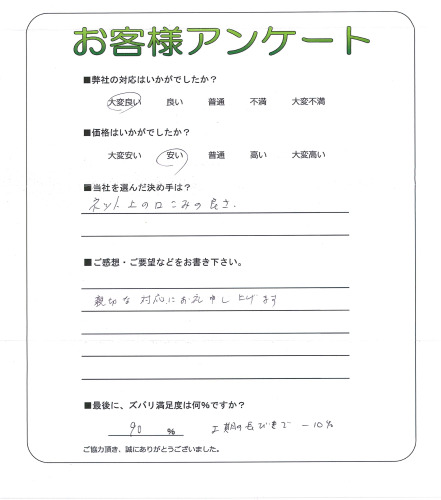 お客様アンケート
■弊社の対応はいかがでしたか？
大変良い 良い 普通 不満 大変不満
■価格はいかがでしたか？
大変安い 安い 普通 高い 大変高い
■当社を選んだ決め手は？
ネット上の口こみの良さ.
■ご感想・ご要望などをお書き下さい。
親切な対応にお礼申し上げます
■最後に、ズバリ満足度は何%ですか？
90 % 工期の長びきで －10%
ご協力頂き、誠にありがとうございました。